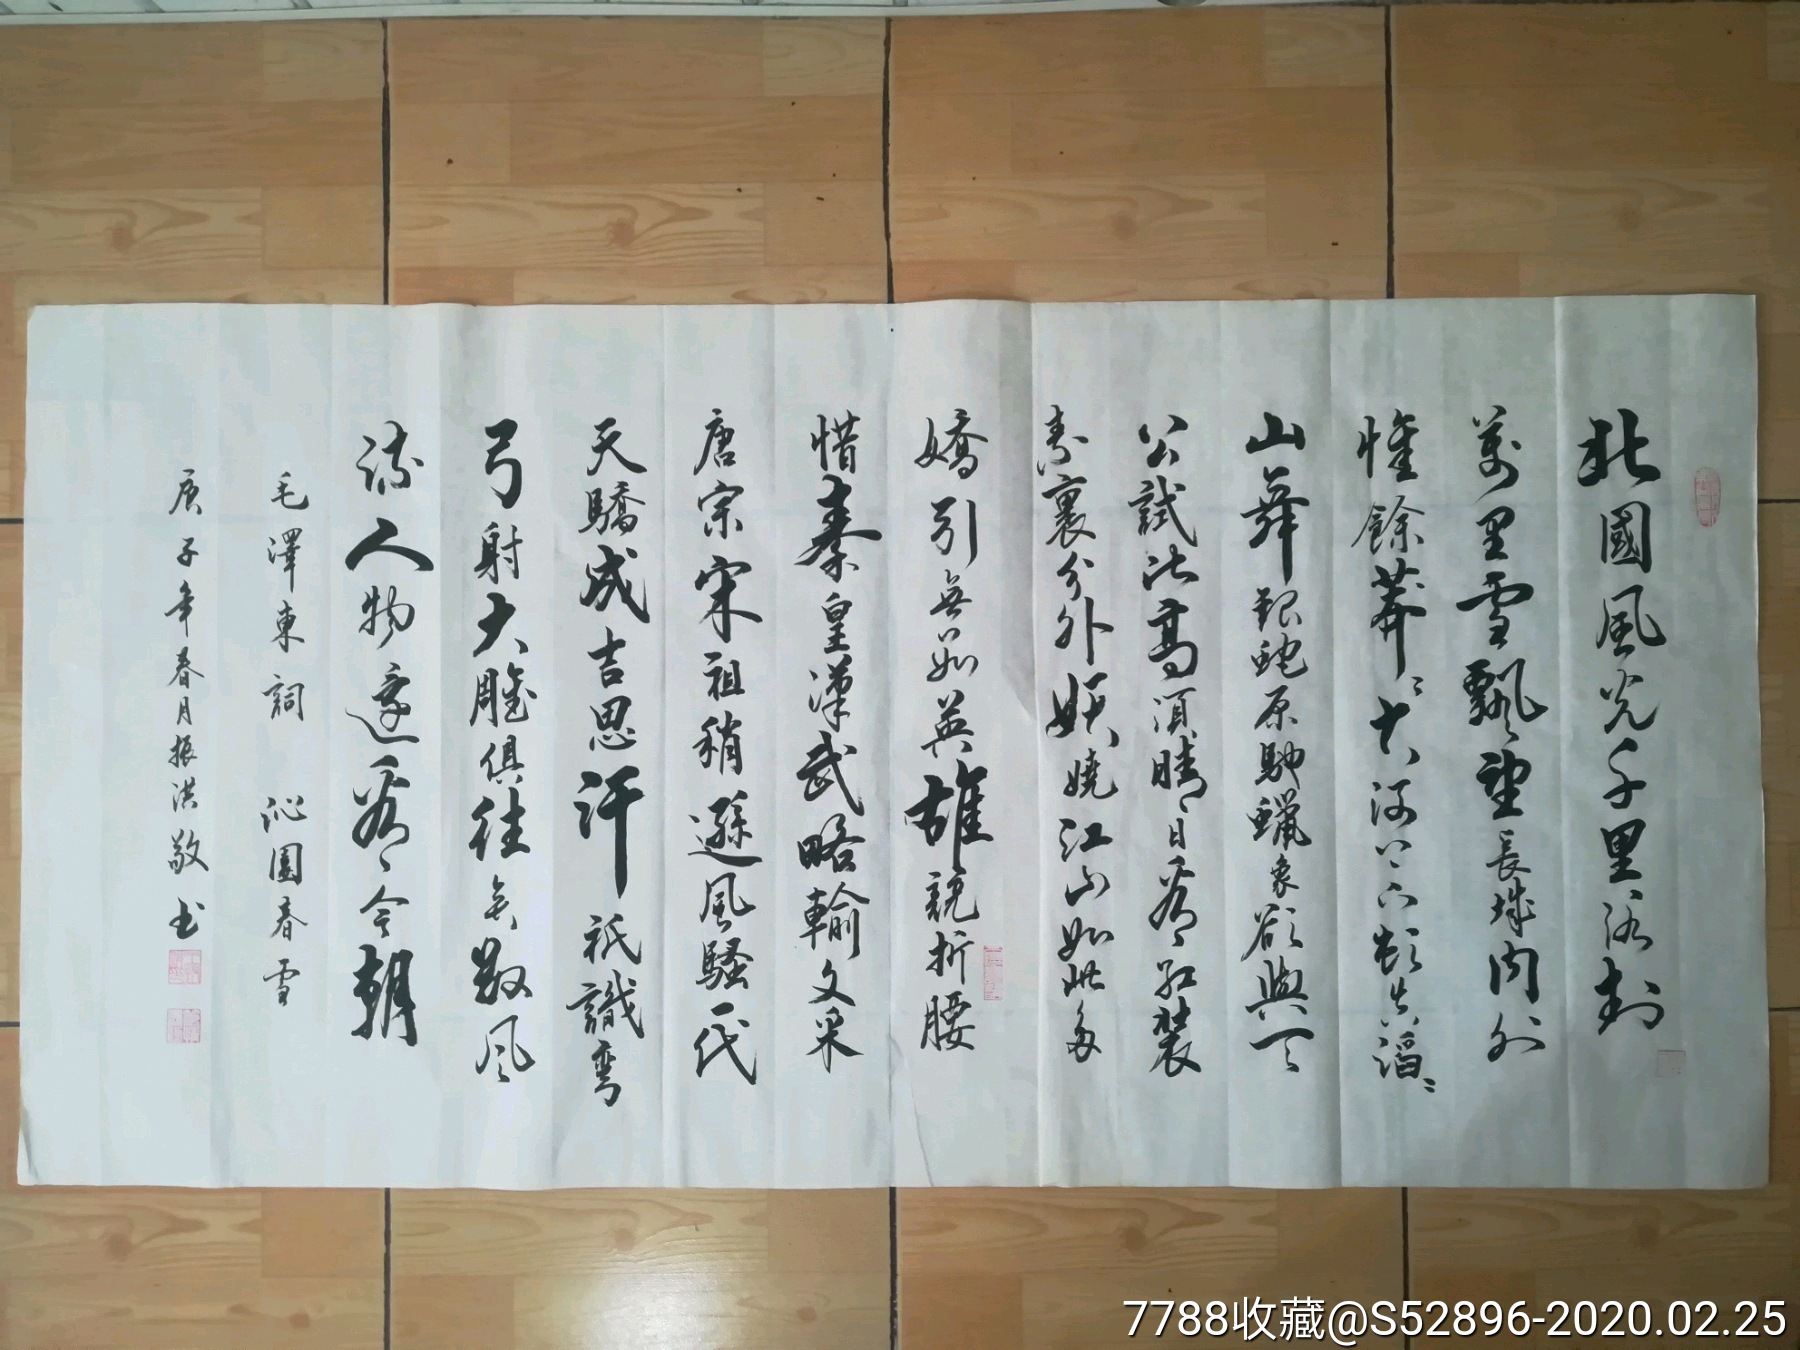 北國風光千里冰封
萬里雪飄望長城内外
惟餘莽〻大河上下頓失滔〻
山舞銀蛇原馳蠟象欲與天
公試比高須晴日看紅裝
素裹分外妖嬈江山如此多
嬌引無數英雄競折腰
惜秦皇漢武略輸文采
唐宗宋祖稍遜風騷一代
天驕成吉思汗祇識彎
弓射大雕俱往矣數風
流人物還看今朝
毛澤東詞 沁園春雪
庚子年春月振洪敬书
7788收藏@S52896-2020.02.25